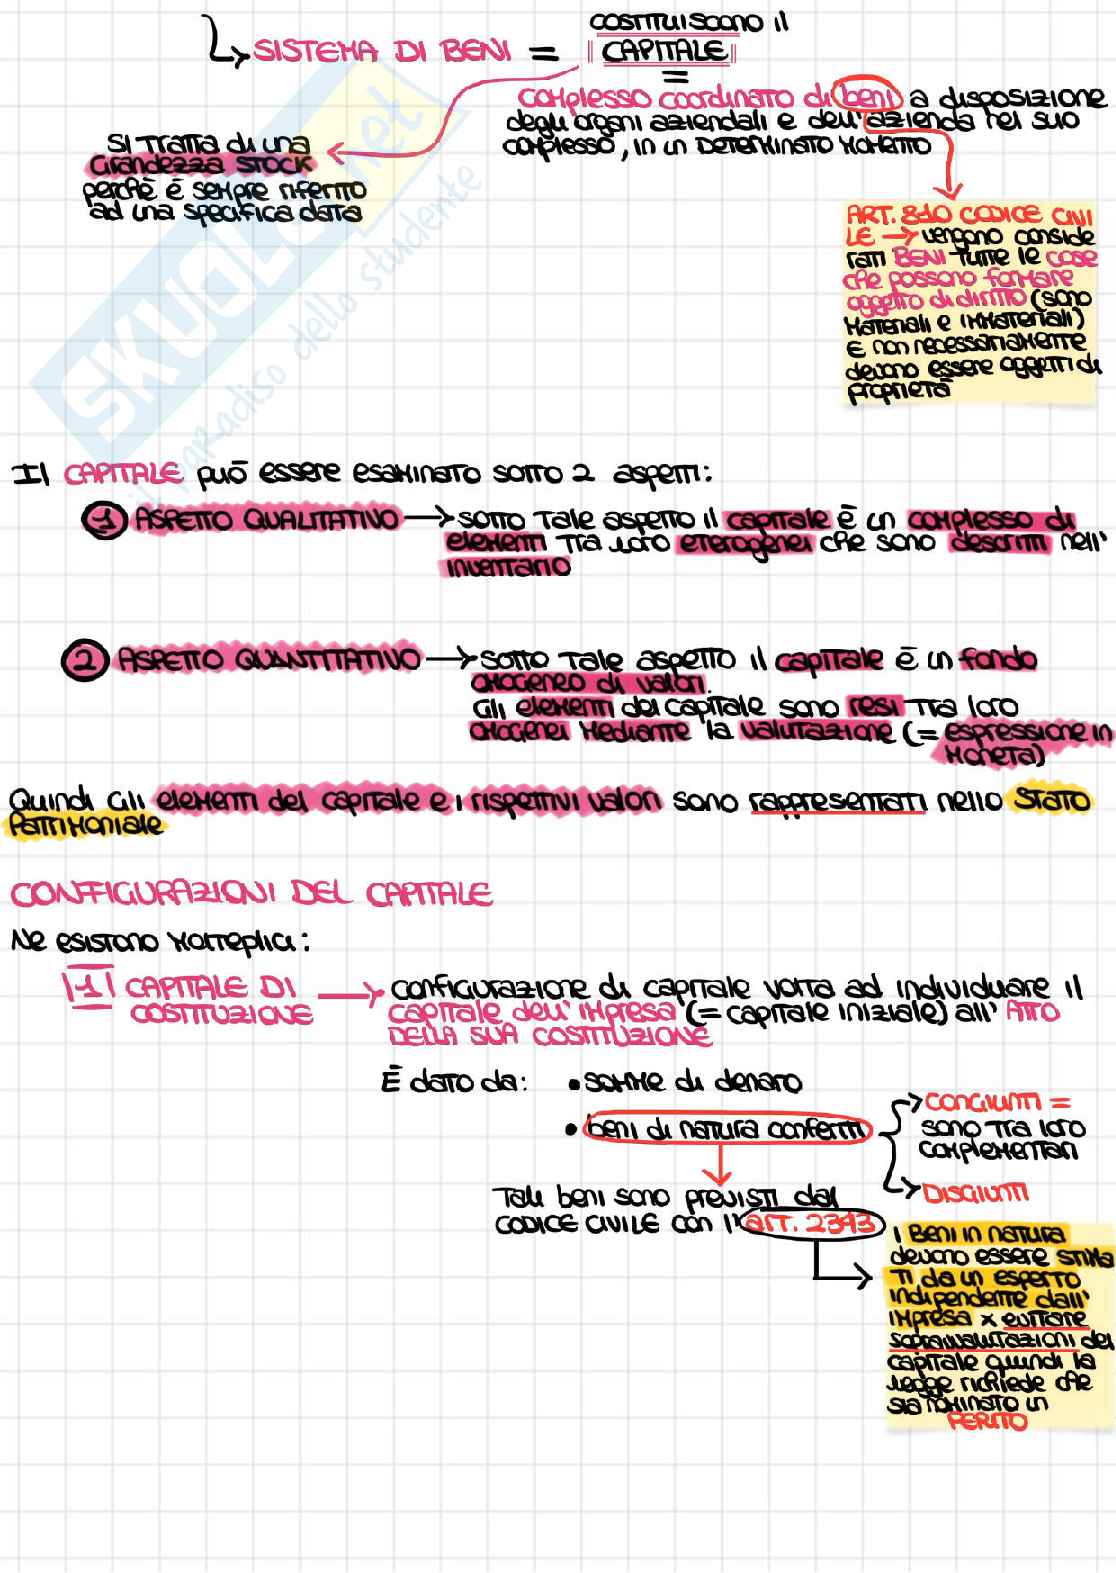 costituiscono il
SISTEMA DI BENI = CAPITALE
=
complesso coordinato di beni a disposizione
degli organi aziendali e dell'azienda nel suo
complesso, in un DETERMINATO MOMENTO
Si tratta di una
Grandezza STOCK
perchè è sempre riferito
ad una specifica data
ART. 810 CODICE CIVI
LE → vengono conside
rati BENI tutte le cose
che possono formare
oggetto di diritto (sono
Materiali e immateriali)
E non necessariamente
devono essere oggetti di
proprietà
Il CAPITALE può essere esaminato sotto 2 aspetti:
1 ASPETTO QUALITATIVO → sotto tale aspetto il capitale è un complesso di
elementi tra loro eterogenei che sono descritti nell'
inventario
2 ASPETTO QUANTITATIVO → sotto tale aspetto il capitale è un fondo
omogeneo di valori.
Gli elementi del capitale sono resi tra loro
omogenei mediante la valutazione (= espressione in
moneta)
Quindi gli elementi del capitale e i rispettivi valori sono rappresentati nello Stato
Patrimoniale
CONFIGURAZIONI DEL CAPITALE
Ne esistono molteplici:
1 CAPITALE DI → configurazione di capitale volta ad individuare il
COSTITUZIONE capitale dell'impresa (= capitale iniziale) all'ATTO
DELLA SUA COSTITUZIONE
È dato da: • somme di denaro
• beni di natura conferiti
CONGIUNTI =
sono tra loro
complementari
DISGIUNTI
Tali beni sono previsti dal
CODICE CIVILE con l'art. 2343
I Beni in natura
devono essere stima
ti da un esperto
indipendente dall'
impresa x evitare
sopravvalutazioni del
capitale quindi la
legge richiede che
sia nominato un
PERITO
SKUOLA.net
il paradiso dello studente